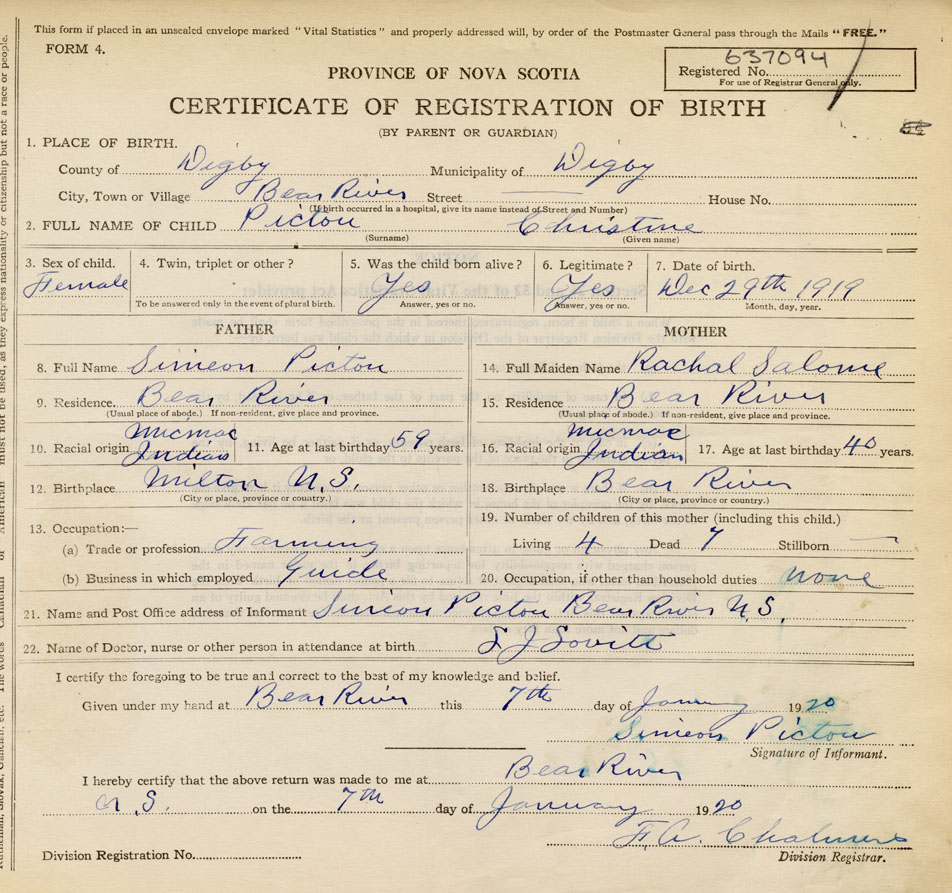 This form if placed in an unsealed envelope marked "Vital Statistics" and properly addressed will, by order of the Postmaster General pass through the Mails "FREE."
FORM 4.
637094
Registered No.
For use of Registrar General only.
PROVINCE OF NOVA SCOTIA
CERTIFICATE OF REGISTRATION OF BIRTH
(BY PARENT OR GUARDIAN)
1. PLACE OF BIRTH.
County of Digby Municipality of Digby
City, Town or Village Bear River Street House No.
(If birth occurred in a hospital, give its name instead of Street and Number)
2. FULL NAME OF CHILD Pictou Christine
(Surname) (Given name)
3. Sex of child. 4. Twin, triplet or other? 5. Was the child born alive? 6. Legitimate? 7. Date of birth.
Female Yes Yes Dec 29th 1919
To be answered only in the event of plural birth. Answer, yes or no. Answer, yes or no. Month, day, year.
FATHER MOTHER
8. Full Name Simeon Pictou 14. Full Maiden Name Rachal Salome
9. Residence. Bear River 15. Residence Bear River
(Usual place of abode.) If non-resident, give place and province. (Usual place of abode.) If non-resident, give place and province.
Micmac Micmac
10. Racial origin Indian 11. Age at last birthday 59 years. 16. Racial origin Indian 17. Age at last birthday 40 years.
12. Birthplace Milton N.S. 18. Birthplace Bear River
(City or place, province or country.) (City or place, province or country.)
13. Occupation:— 19. Number of children of this mother (including this child.)
(a) Trade or profession Farming Living 4 Dead 7 Stillborn —
(b) Business in which employed Guide 20. Occupation, if other than household duties none
21. Name and Post Office address of Informant Simeon Pictou Bear River N.S.
22. Name of Doctor, nurse or other person in attendance at birth L J Lovitt
I certify the foregoing to be true and correct to the best of my knowledge and belief.
Given under my hand at Bear River this 7th day of January 1920
Simeon Pictou
Signature of Informant.
I hereby certify that the above return was made to me at Bear River
N.S. on the 7th day of January 1920
F. A. Chalmers
Division Registrar.
Division Registration No.